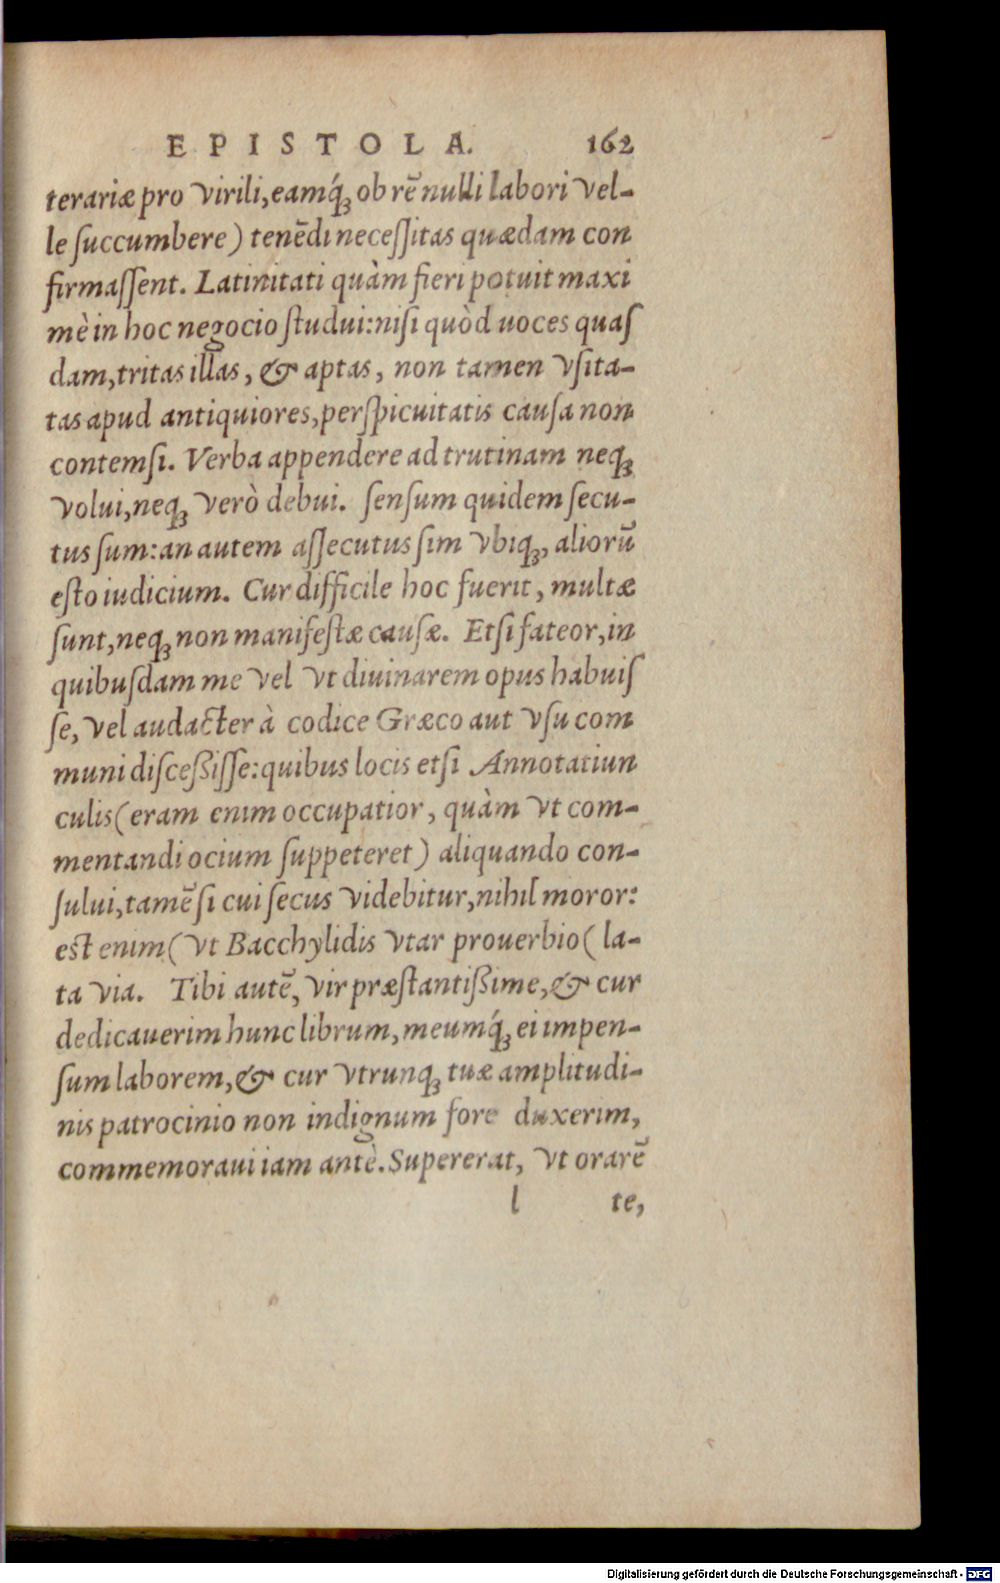 EPISTOLA. 162
terariæ pro virili, eamq́; ob rē nulli labori vel-
le ſuccumbere) tenēdi neceſſitas quædam con
firmaſſent. Latinitati quàm fieri potuit maxi
mè in hoc negocio ſtudui: niſi quòd uoces quaſ
dam, tritas illas, & aptas, non tamen vſita-
tas apud antiquiores, perſpicuitatis cauſa non
contemſi. Verba appendere ad trutinam neq;
volui, neq; verò debui. ſenſum quidem ſecu-
tus ſum: an autem aſſecutus ſim vbiq;, aliorū
eſto iudicium. Cur difficile hoc fuerit, multæ
ſunt, neq; non manifeſtæ cauſæ. Etſi fateor, in
quibuſdam me vel vt diuinarem opus habuiſ
ſe, vel audacter à codice Græco aut vſu com
muni diſceßiſſe: quibus locis etſi Annotatiun
culis (eram enim occupatior, quàm vt com-
mentandi ocium ſuppeteret) aliquando con-
ſului, tamē ſi cui ſecus videbitur, nihil moror:
eſt enim ( vt Bacchylidis vtar prouerbio ( la-
ta via. Tibi autē, vir præſtantißime, & cur
dedicauerim hunc librum, meumq́; ei impen-
ſum laborem, & cur vtrunq; tuæ amplitudi-
nis patrocinio non indignum fore duxerim,
commemoraui iam antè. Supererat, vt orarē
l te,
Digitalisierung gefördert durch die Deutsche Forschungsgemeinschaft - DFG